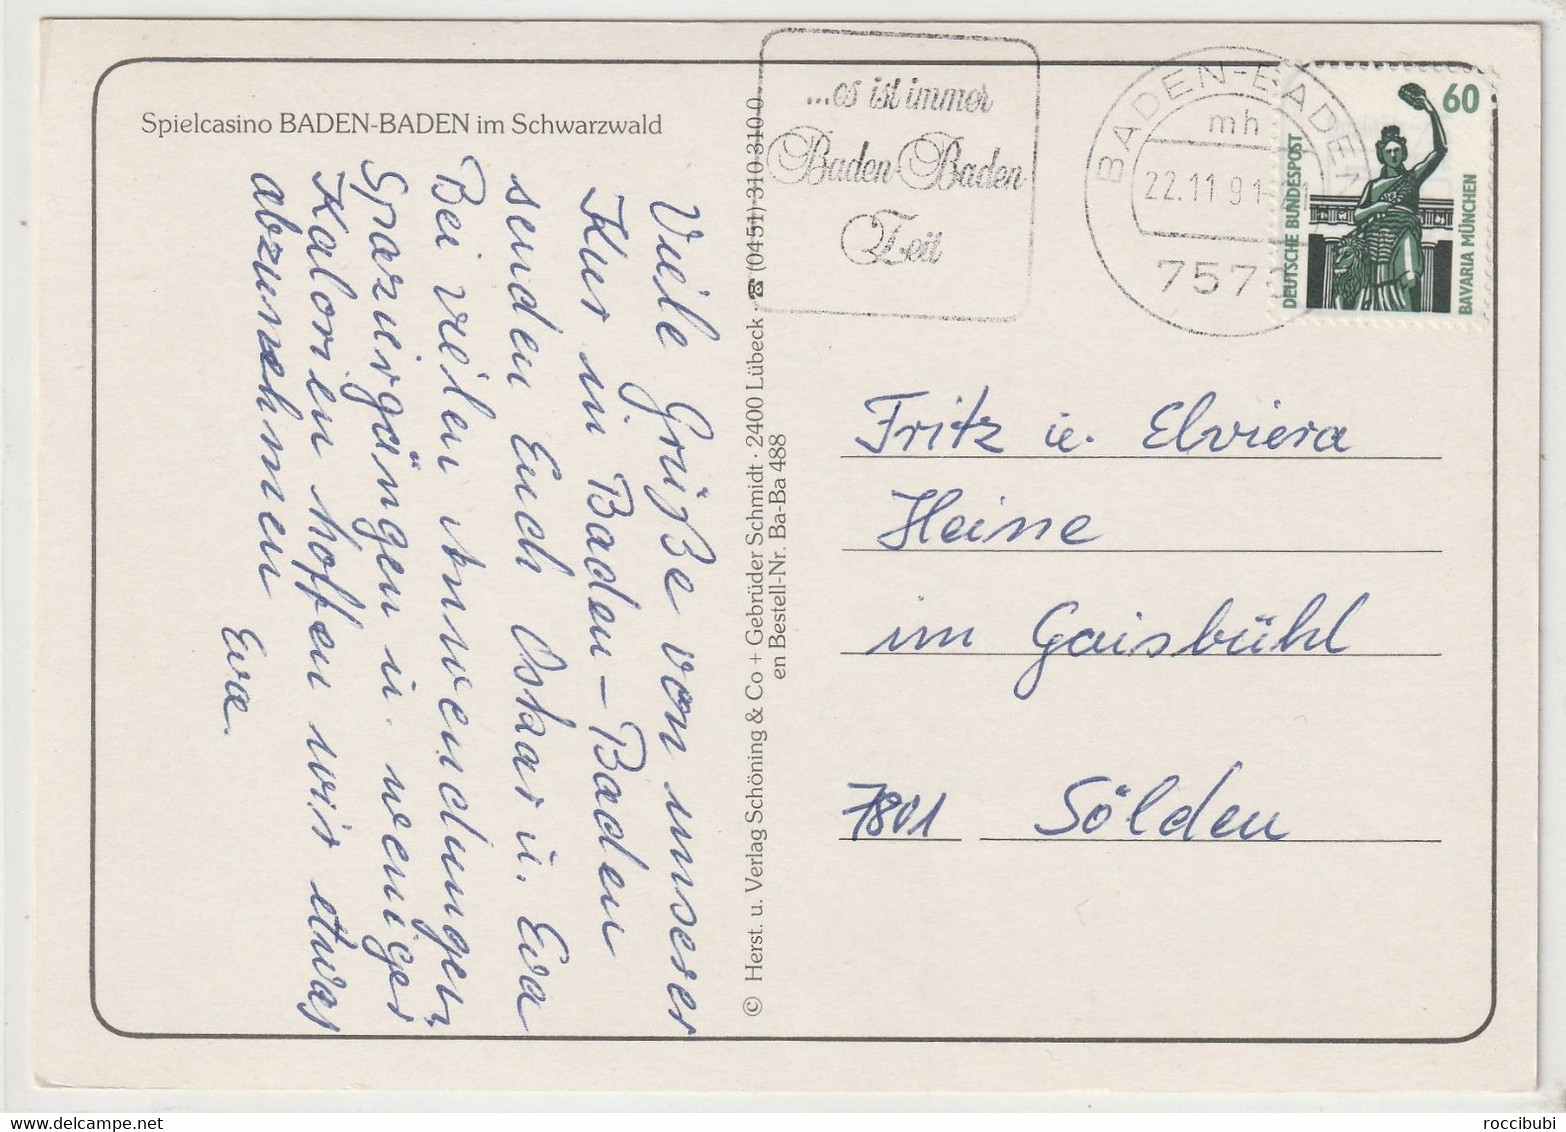 Spielcasino BADEN-BADEN im Schwarzwald
Viele Grüße von unserer
Kur in Baden-Baden
senden Euch Oskar u. Eva
Bei vielen Anwendungen,
Spaziergängen u. weniger
Kalorien hoffen wir etwas
abzunehmen
Eva.
© Herst. u. Verlag Schöning & Co + Gebrüder Schmidt · 2400 Lübeck · ☎ (0451) 310 310 0
en Bestell-Nr. Ba-Ba 488
...es ist immer
Baden-Baden
Zeit
BADEN-BADEN
mh
22.11.91-21
757
60
DEUTSCHE BUNDESPOST
BAVARIA MÜNCHEN
Fritz u. Elviera
Heine
im Gaisbühl
7801 Sölden
roccibubi